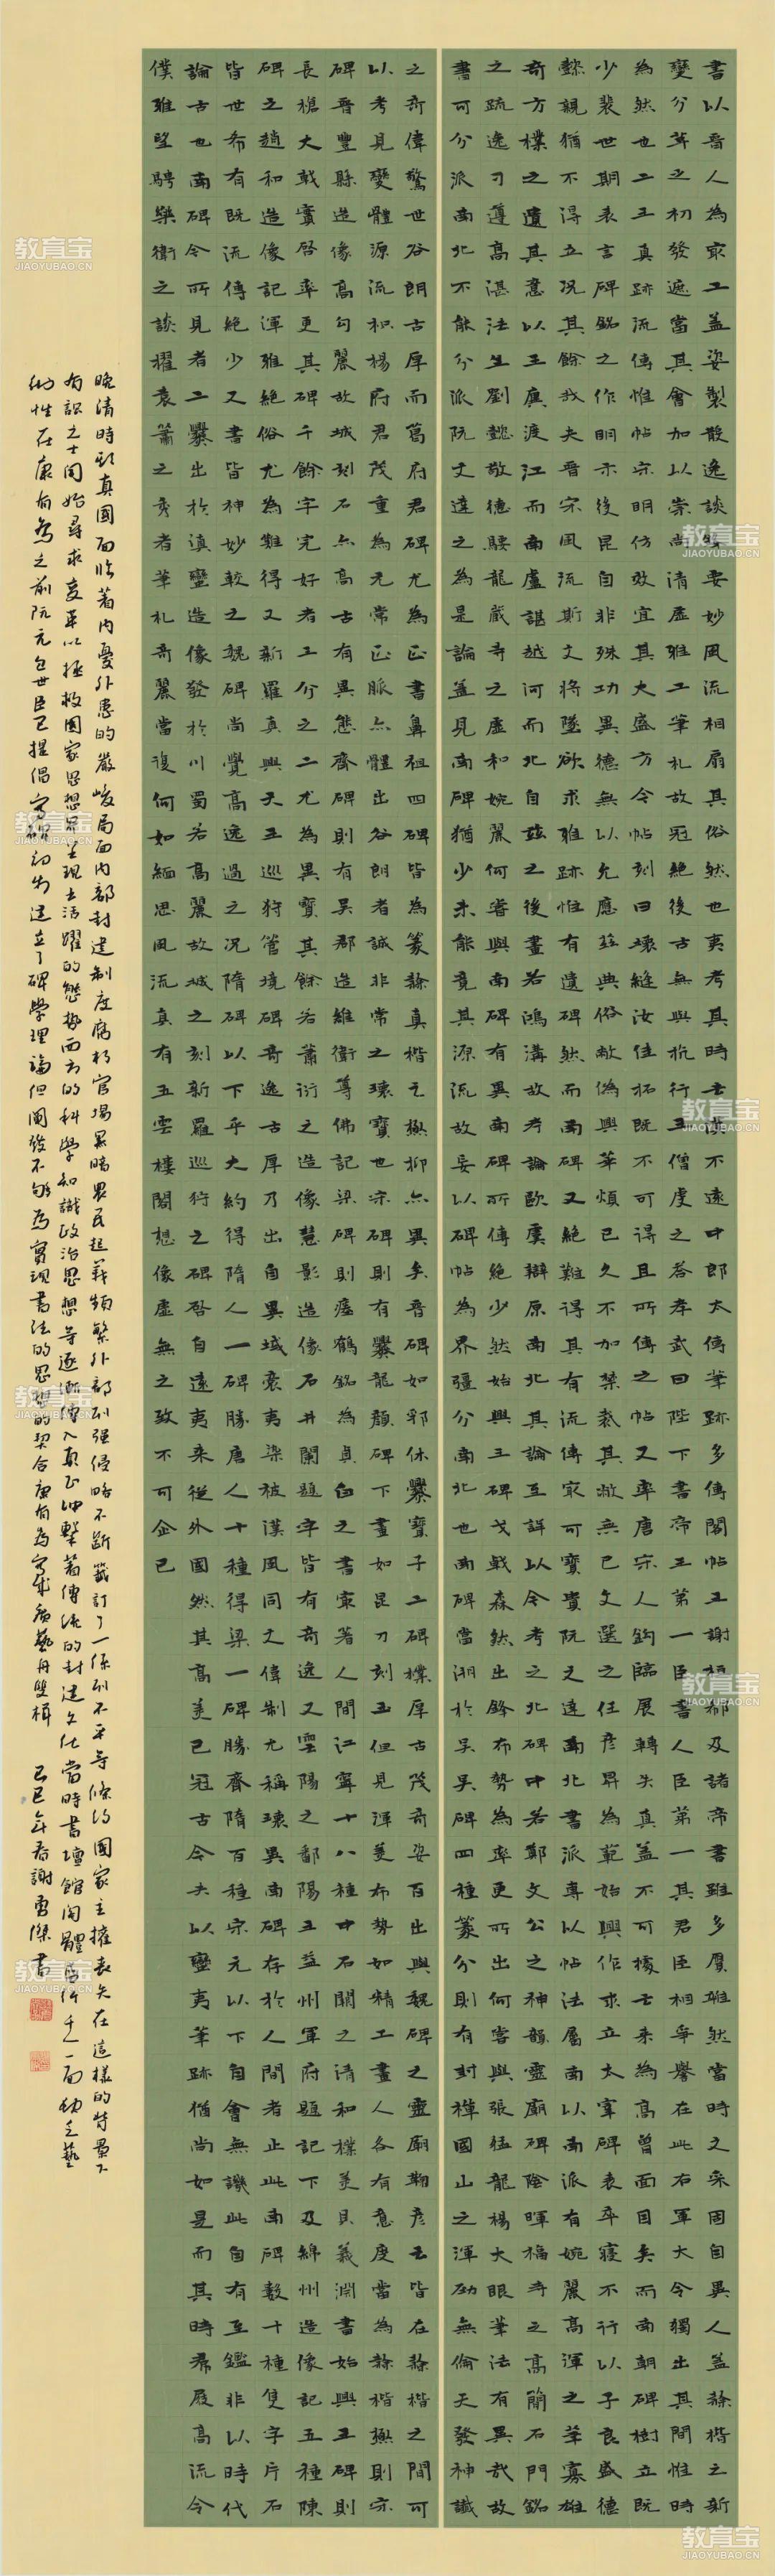 書以晉人為最工蓋姿製散逸談鋒要妙風流相扇其俗然也夷考其時去漢不遠中郎太傅筆跡多傳閣帖王謝桓郗及諸帝書雖多贗雜然當時文采固自異人蓋隸楷之新
變分草之初發適當其會加以崇尚清虛雅工筆札故冠絕後古無與抗行王僧虔之答孝武曰陛下書帝王第一臣書人臣第一其君臣相爭譽在此右軍大令獨出其間惟時
為然也二王真跡流傳惟帖宋明仿效宜其大盛方今帖刻日壞縫汝佳拓既不可得且所傳之帖又率唐宋人鉤臨展轉失真蓋不可據云來為高曾面目矣而南朝碑樹立既
少裴世期表言碑銘之作明示後昆自非殊功異德無以允應茲典俗敝偽興華煩已久不加禁裁其敝無已文選之任彥昇為范始興作求立太宰碑表卒寢不行以子良盛德
懿親猶不得立況其餘哉夫晉宋風流斯文將墜欲求雅跡惟有遺碑然而南碑又絕難得其有流傳最可寶貴阮文達南北書派專以帖法屬南以南派有婉麗高渾之筆寡雄
奇方樸之遺其意以王廙渡江而南盧諶越河而北自茲之後畫若鴻溝故考論歐虞辯原南北其論至詳以今考之北碑中若鄭文公之神韻靈廟碑陰暉福寺之高簡石門銘
之疏逸刁遵高湛法生劉懿敬德騣龍藏寺之虛和婉麗何嘗與南碑有異南碑所傳絕少然始興王碑戈戟森然出鋒布勢為率更所出何嘗與張猛龍楊大眼筆法有異哉故
書可分派南北不能分派阮文達之為是論蓋見南碑猶少未能竟其源流故妄以碑帖為界疆分南北也南碑當溯於吳吳碑四種篆分則有封禪國山之渾勁無倫天發神讖
之奇偉驚世谷朗古厚而葛府君碑尤為正書鼻祖四碑皆為篆隸真楷之極抑亦異矣晉碑如郛休爨寶子二碑樸厚古茂奇姿百出與魏碑之靈廟鞠彥云皆在隸楷之間可
以考見變體源流枳楊府君茂重為元常正脈亦體出谷朗者誠非常之瓌寶也宋碑則有爨龍顏碑下畫如昆刀刻玉但見渾美布勢如精工畫人各有意度當為隸楷極則宋
碑晉豐縣造像高句麗故城刻石亦高古有異態齊碑則有吳郡造維衛尊佛記梁碑則瘞鶴銘為貞白之書最著人間江寧十八種中石闕之清和樸美貝義淵書始興王碑則
長槍大戟實啓率更其碑千餘字完好者三分之二尤為異寶其餘若蕭衍之造像慧影造像石井闌題字皆有奇逸又雲陽之鄱陽王益州軍府題記下及綿州造像記五種陳
碑之趙和造像記渾雅絕俗尤為難得又新羅真興天王巡狩管境碑奇逸古厚乃出自異域裔夷染被漢風同文偉制尤稱瓌異南碑存於人間者止此南碑數十種隻字片石
皆世希有既流傳絕少又書皆神妙較之魏碑尚覺高逸過之況隋碑以下乎大約得隋人一碑勝唐人十種得梁一碑勝齊隋百種宋元以下自會無譏此自有至鑑非以時代
論古也南碑今所見者二爨出於滇蠻造像發於川蜀若高麗故城之刻新羅巡狩之碑啓自遠夷來從外國然其高美已冠古今夫以蠻夷筆跡猶尚如是而其時帬屐高流令
僕雅望騁樂衛之談擢袁蕭之秀者筆札奇麗當復何如緬思風流真有五雲樓閣想像虛無之致不可企已
晚清時期真國面臨著內憂外患的嚴峻局面內部封建制度腐朽官場黑暗農民起義頻繁外部列強侵略不斷簽訂了一系列不平等條約國家主權喪失在這樣的背景下
有識之士開始尋求變革以拯救國家思想界呈現出活躍的態勢西方的科學知識政治思想等逐漸傳入真正沖擊著傳統的封建文化當時書壇館閣體盛行千人一面缺乏藝
術性在康有為之前阮元包世臣已提倡書碑初步建立了碑學理論但闡發不夠為實現書法的思想的契合康有為寫成廣藝舟雙楫 己巳年春謝勇傑書
教育宝
JIAOYUBAO.CN
教育宝
JIAOYUBAO.CN
教育宝
JIAOYUBAO.CN
教育宝
JIAOYUBAO.CN
教育宝
JIAOYUBAO.CN
教育宝
JIAOYUBAO.CN
教育宝
JIAOYUBAO.CN
教育宝
JIAOYUBAO.CN